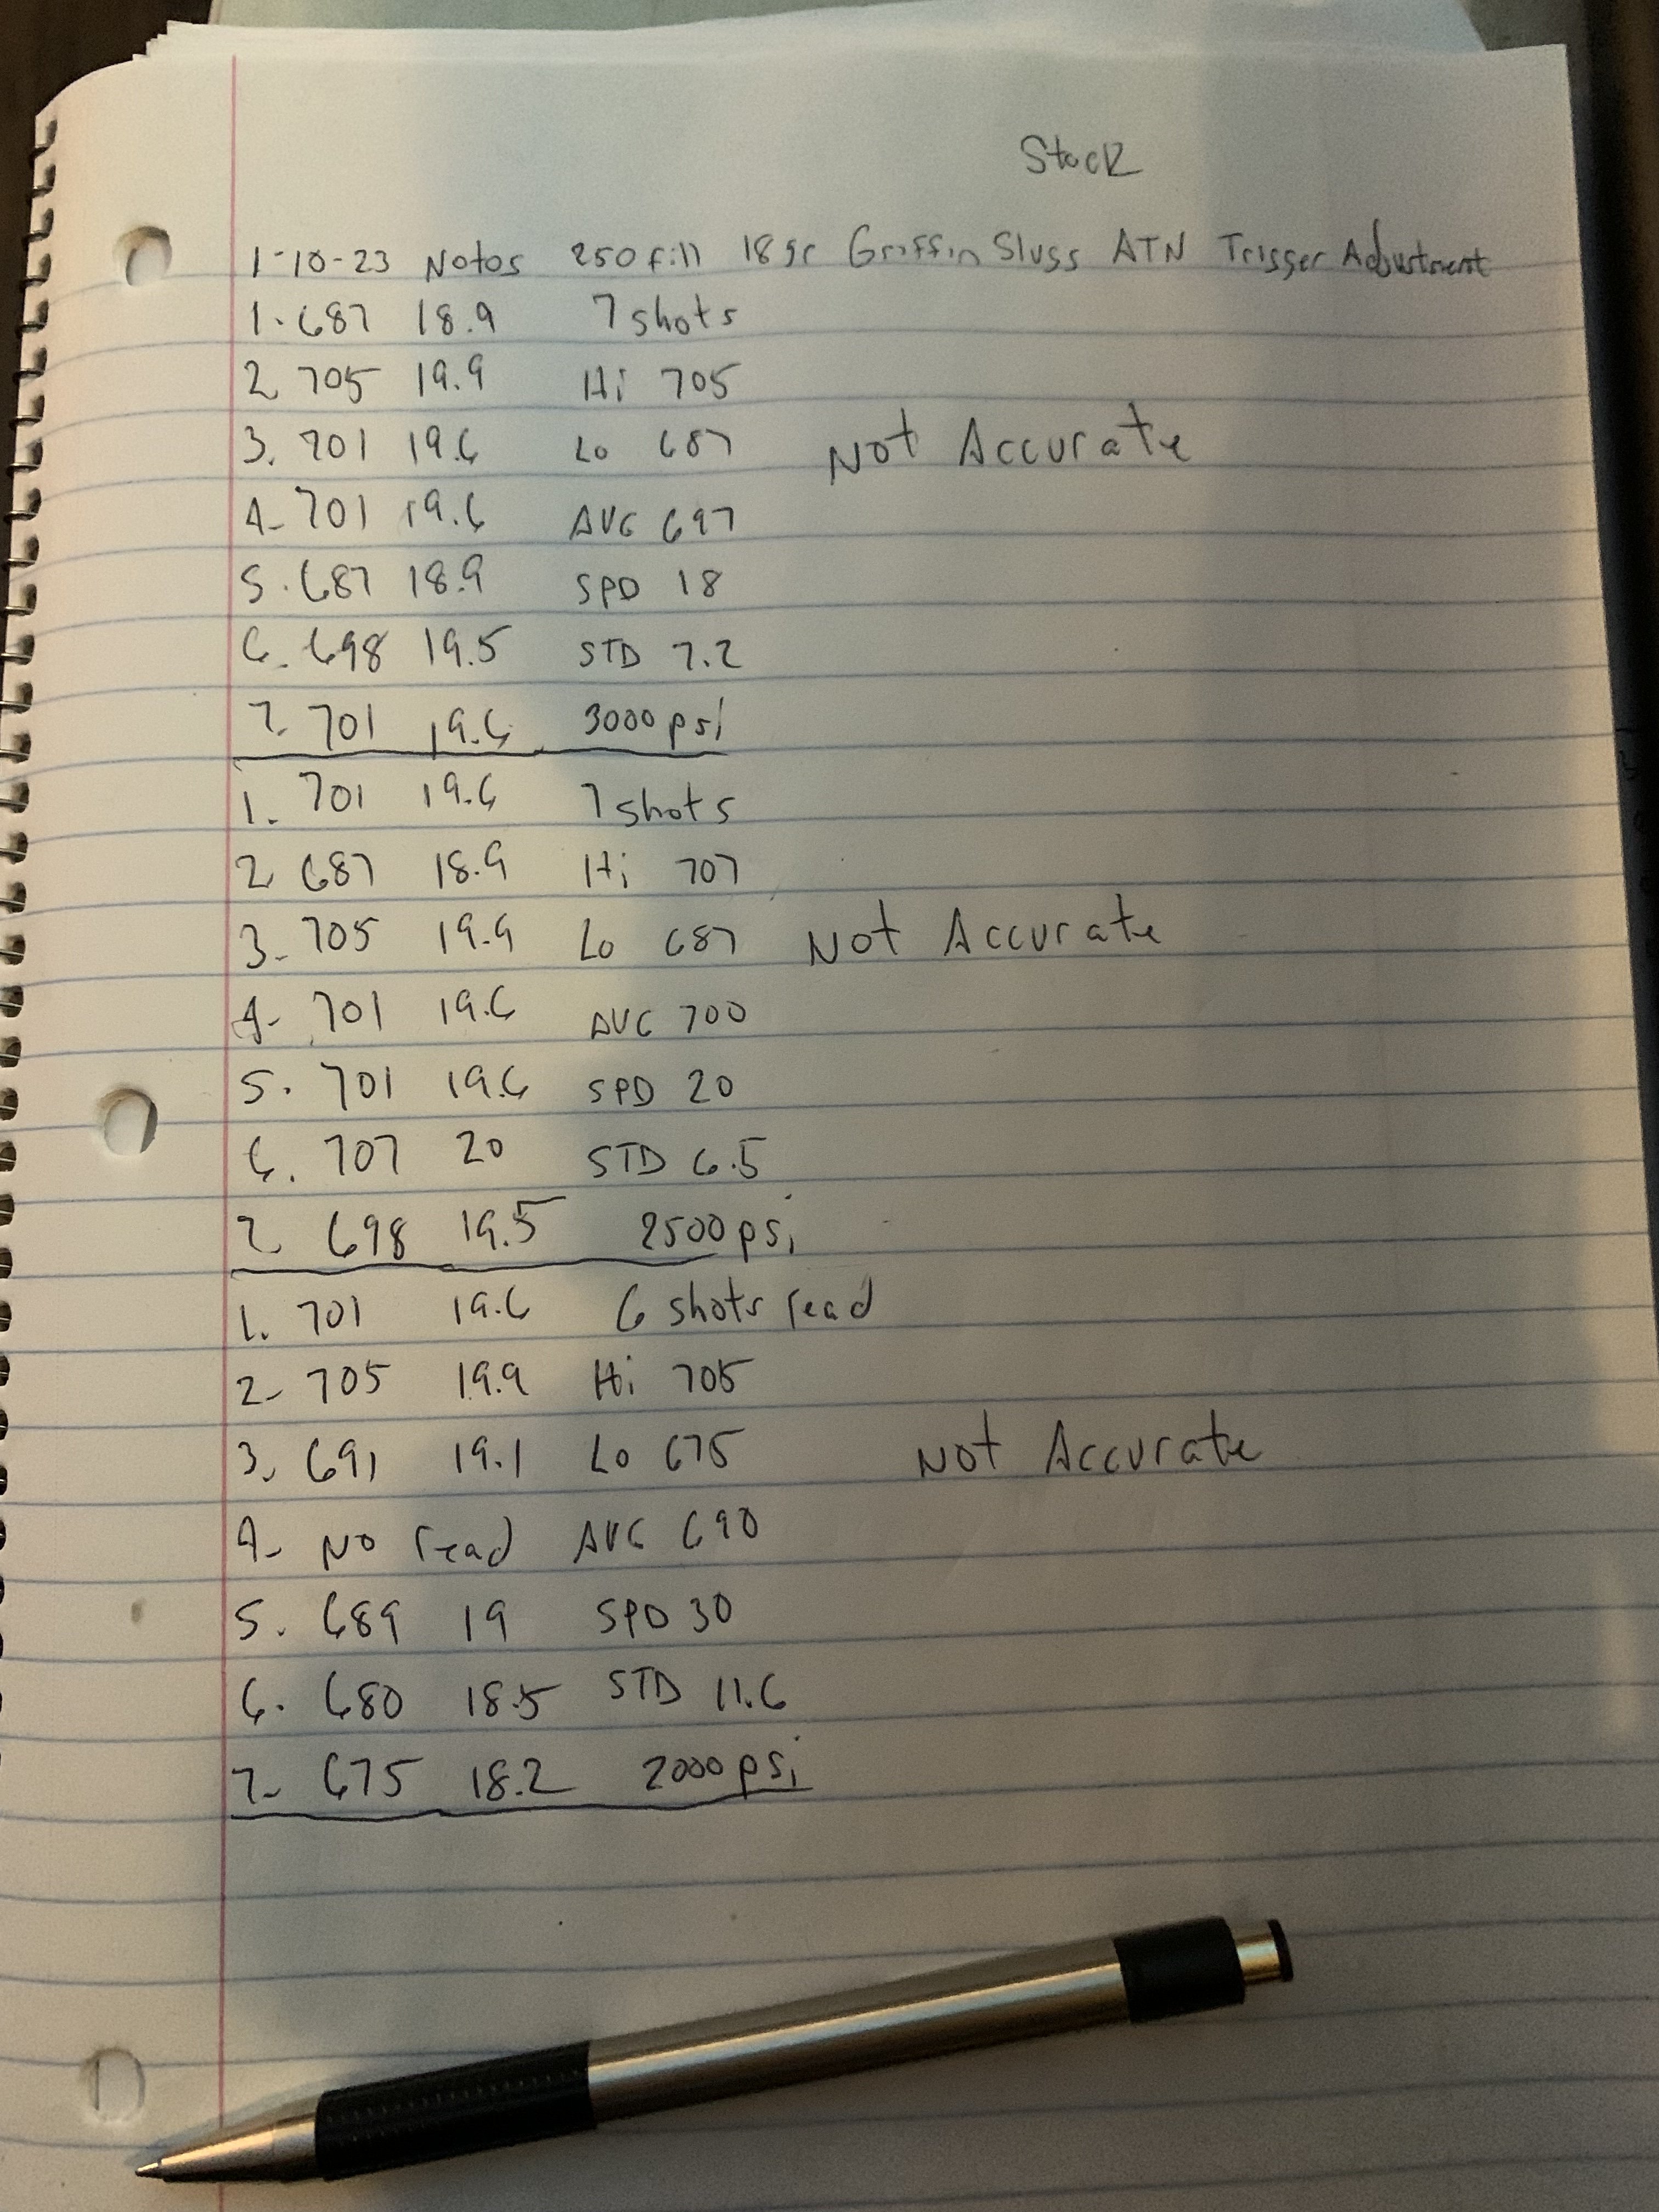 Stock
1-10-23 Notes 250 fill 18gr Griffin Slugs ATN Trigger Adjustment
1. 687 18.9 7 shots
2 705 19.9 Hi 705
3. 701 19.6 Lo 687 Not Accurate
4- 701 19.6 AVG 697
5. 687 18.9 SPD 18
6. 698 19.5 STD 7.2
7. 701 19.6 3000 psi
1. 701 19.6 7 shots
2 687 18.9 Hi 707
3- 705 19.9 Lo 687 Not Accurate
4- 701 19.6 AVG 700
5. 701 19.6 SPD 20
6. 707 20 STD 6.5
7 698 19.5 2500 psi
1. 701 19.6 6 shots read
2- 705 19.9 Hi 705
3. 691 19.1 Lo 675 Not Accurate
4- No read AVG 690
5. 689 19 SPD 30
6. 680 18.5 STD 11.6
7- 675 18.2 2000 psi